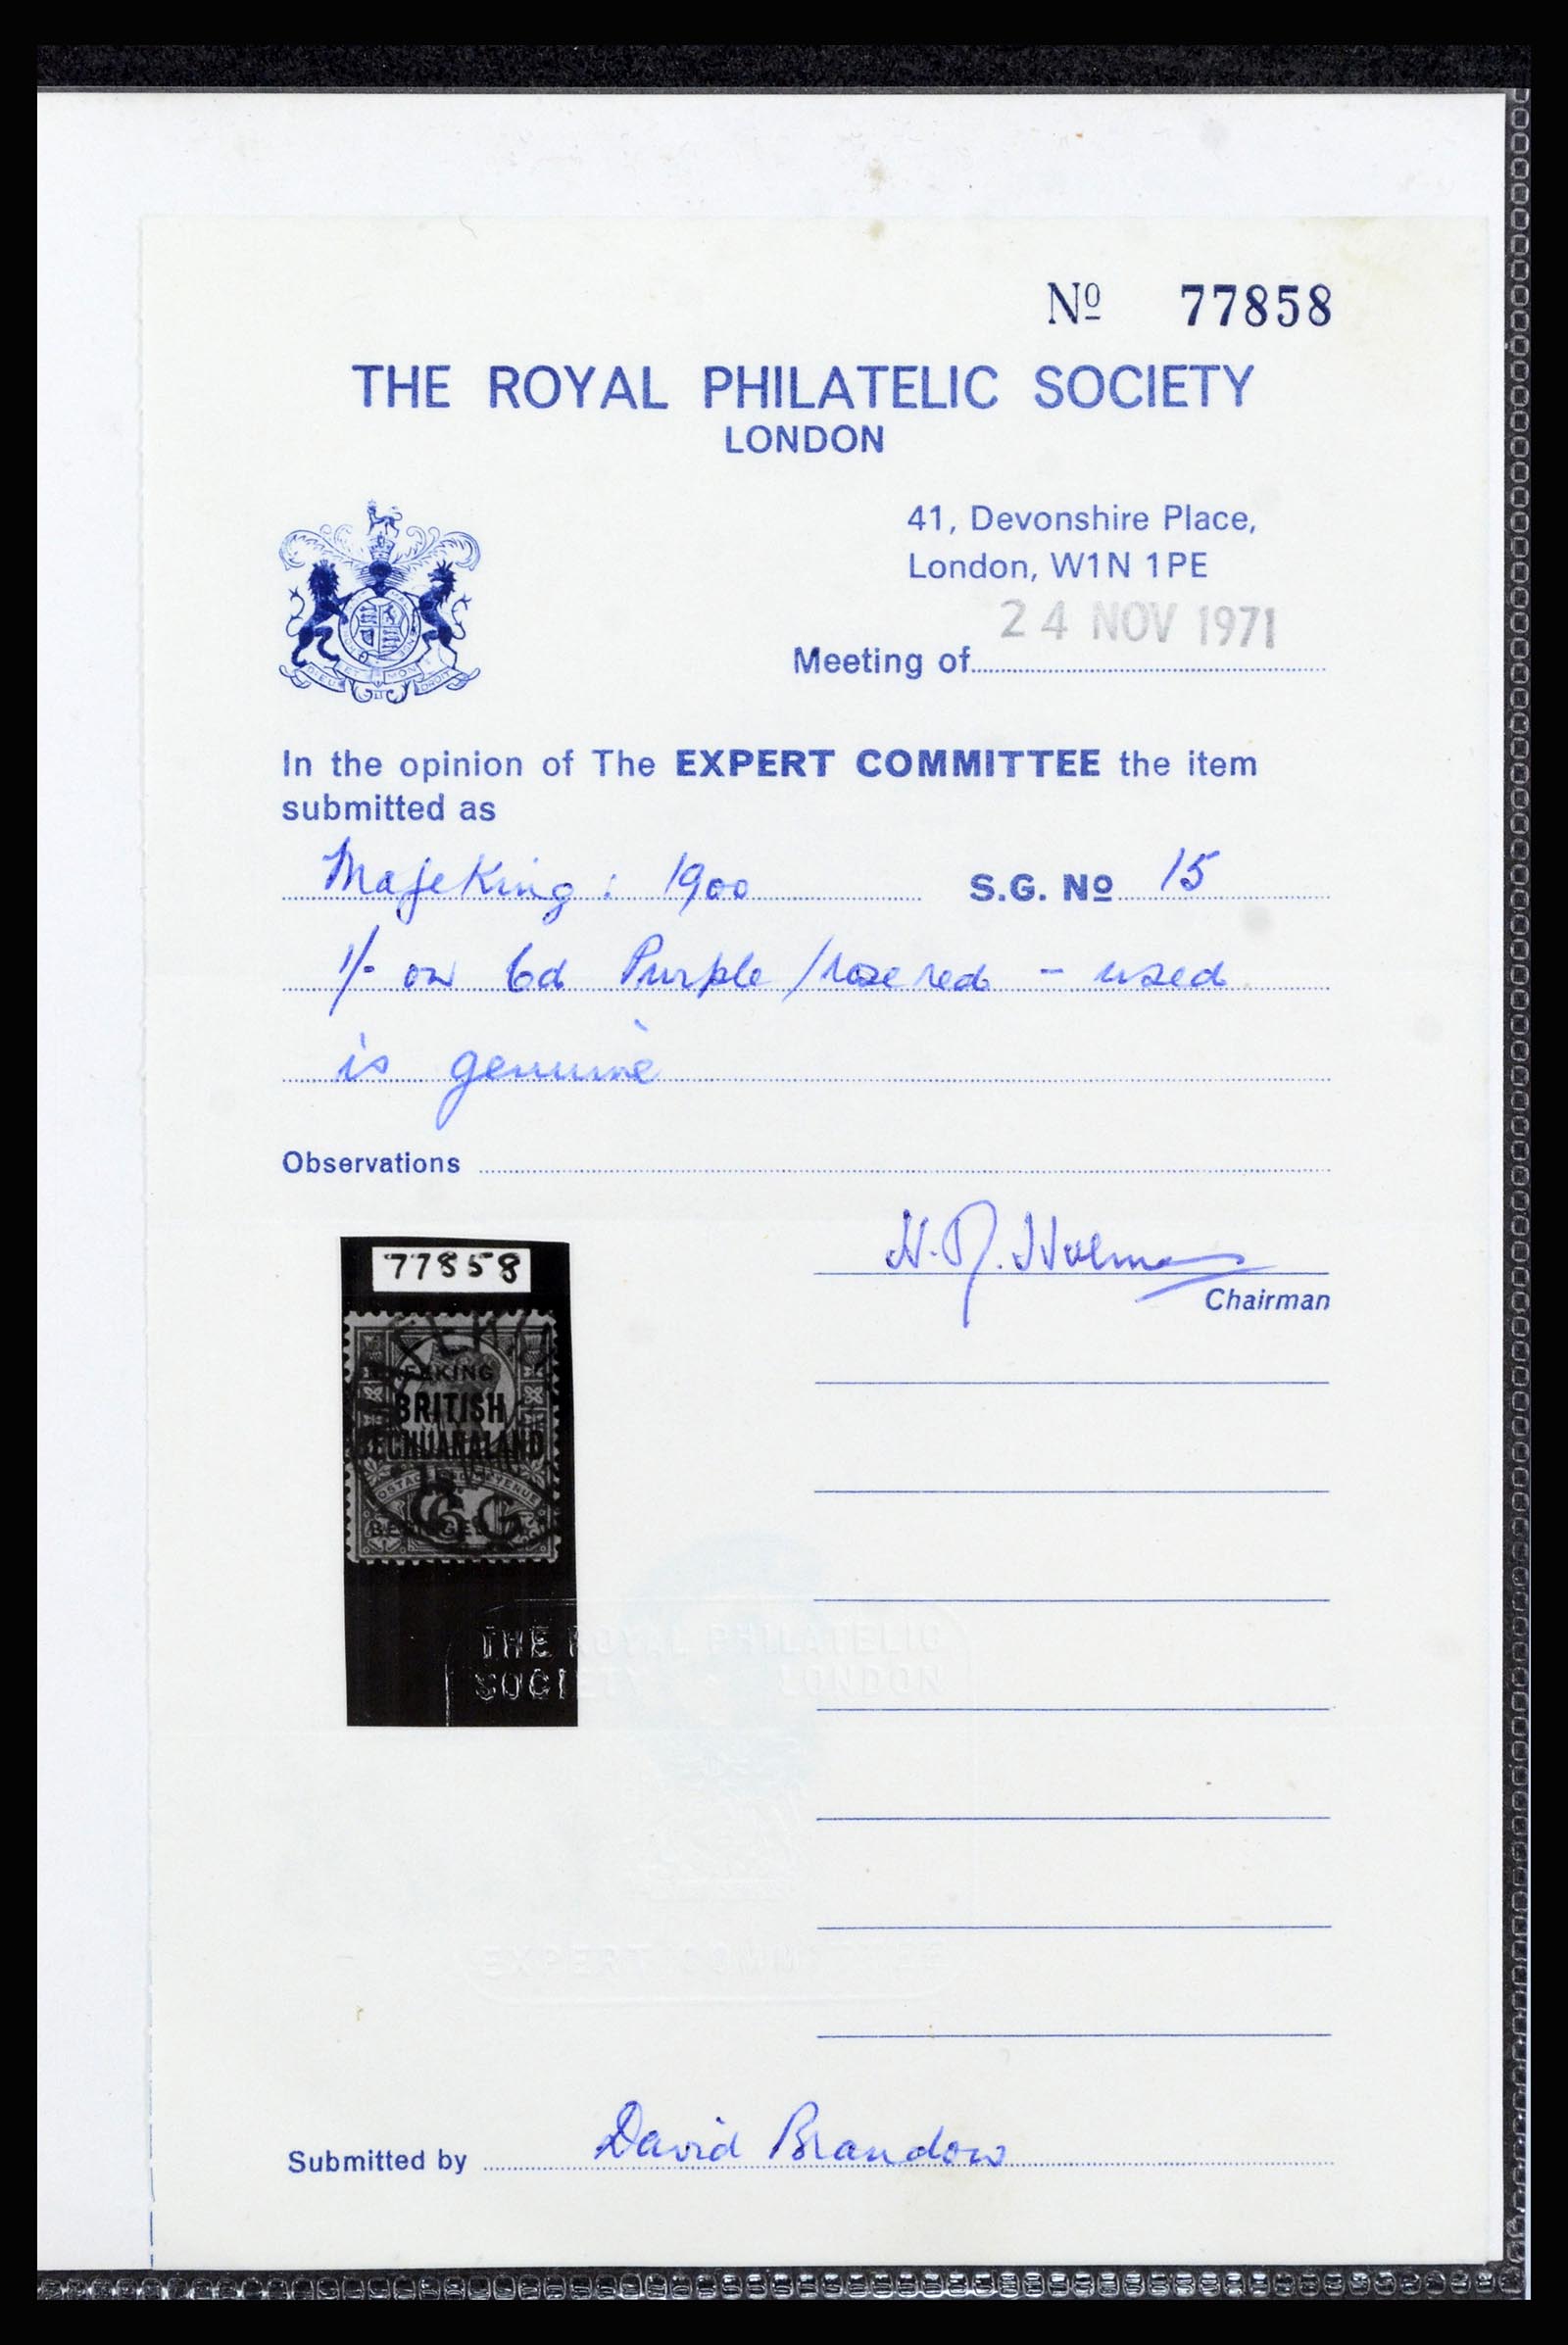 Nº 77858
THE ROYAL PHILATELIC SOCIETY
LONDON
41, Devonshire Place,
London, W1N 1PE
24 NOV 1971
Meeting of
In the opinion of The EXPERT COMMITTEE the item
submitted as
Mafeking : 1900 S.G. Nº 15
1/- on 6d Purple/rose red - used
is genuine
Observations
H.R. Holmes
Chairman
77858
BRITISH
BECHUANALAND
THE ROYAL PHILATELIC
SOCIETY LONDON
EXPERT COMMITTEE
Submitted by David Brandow